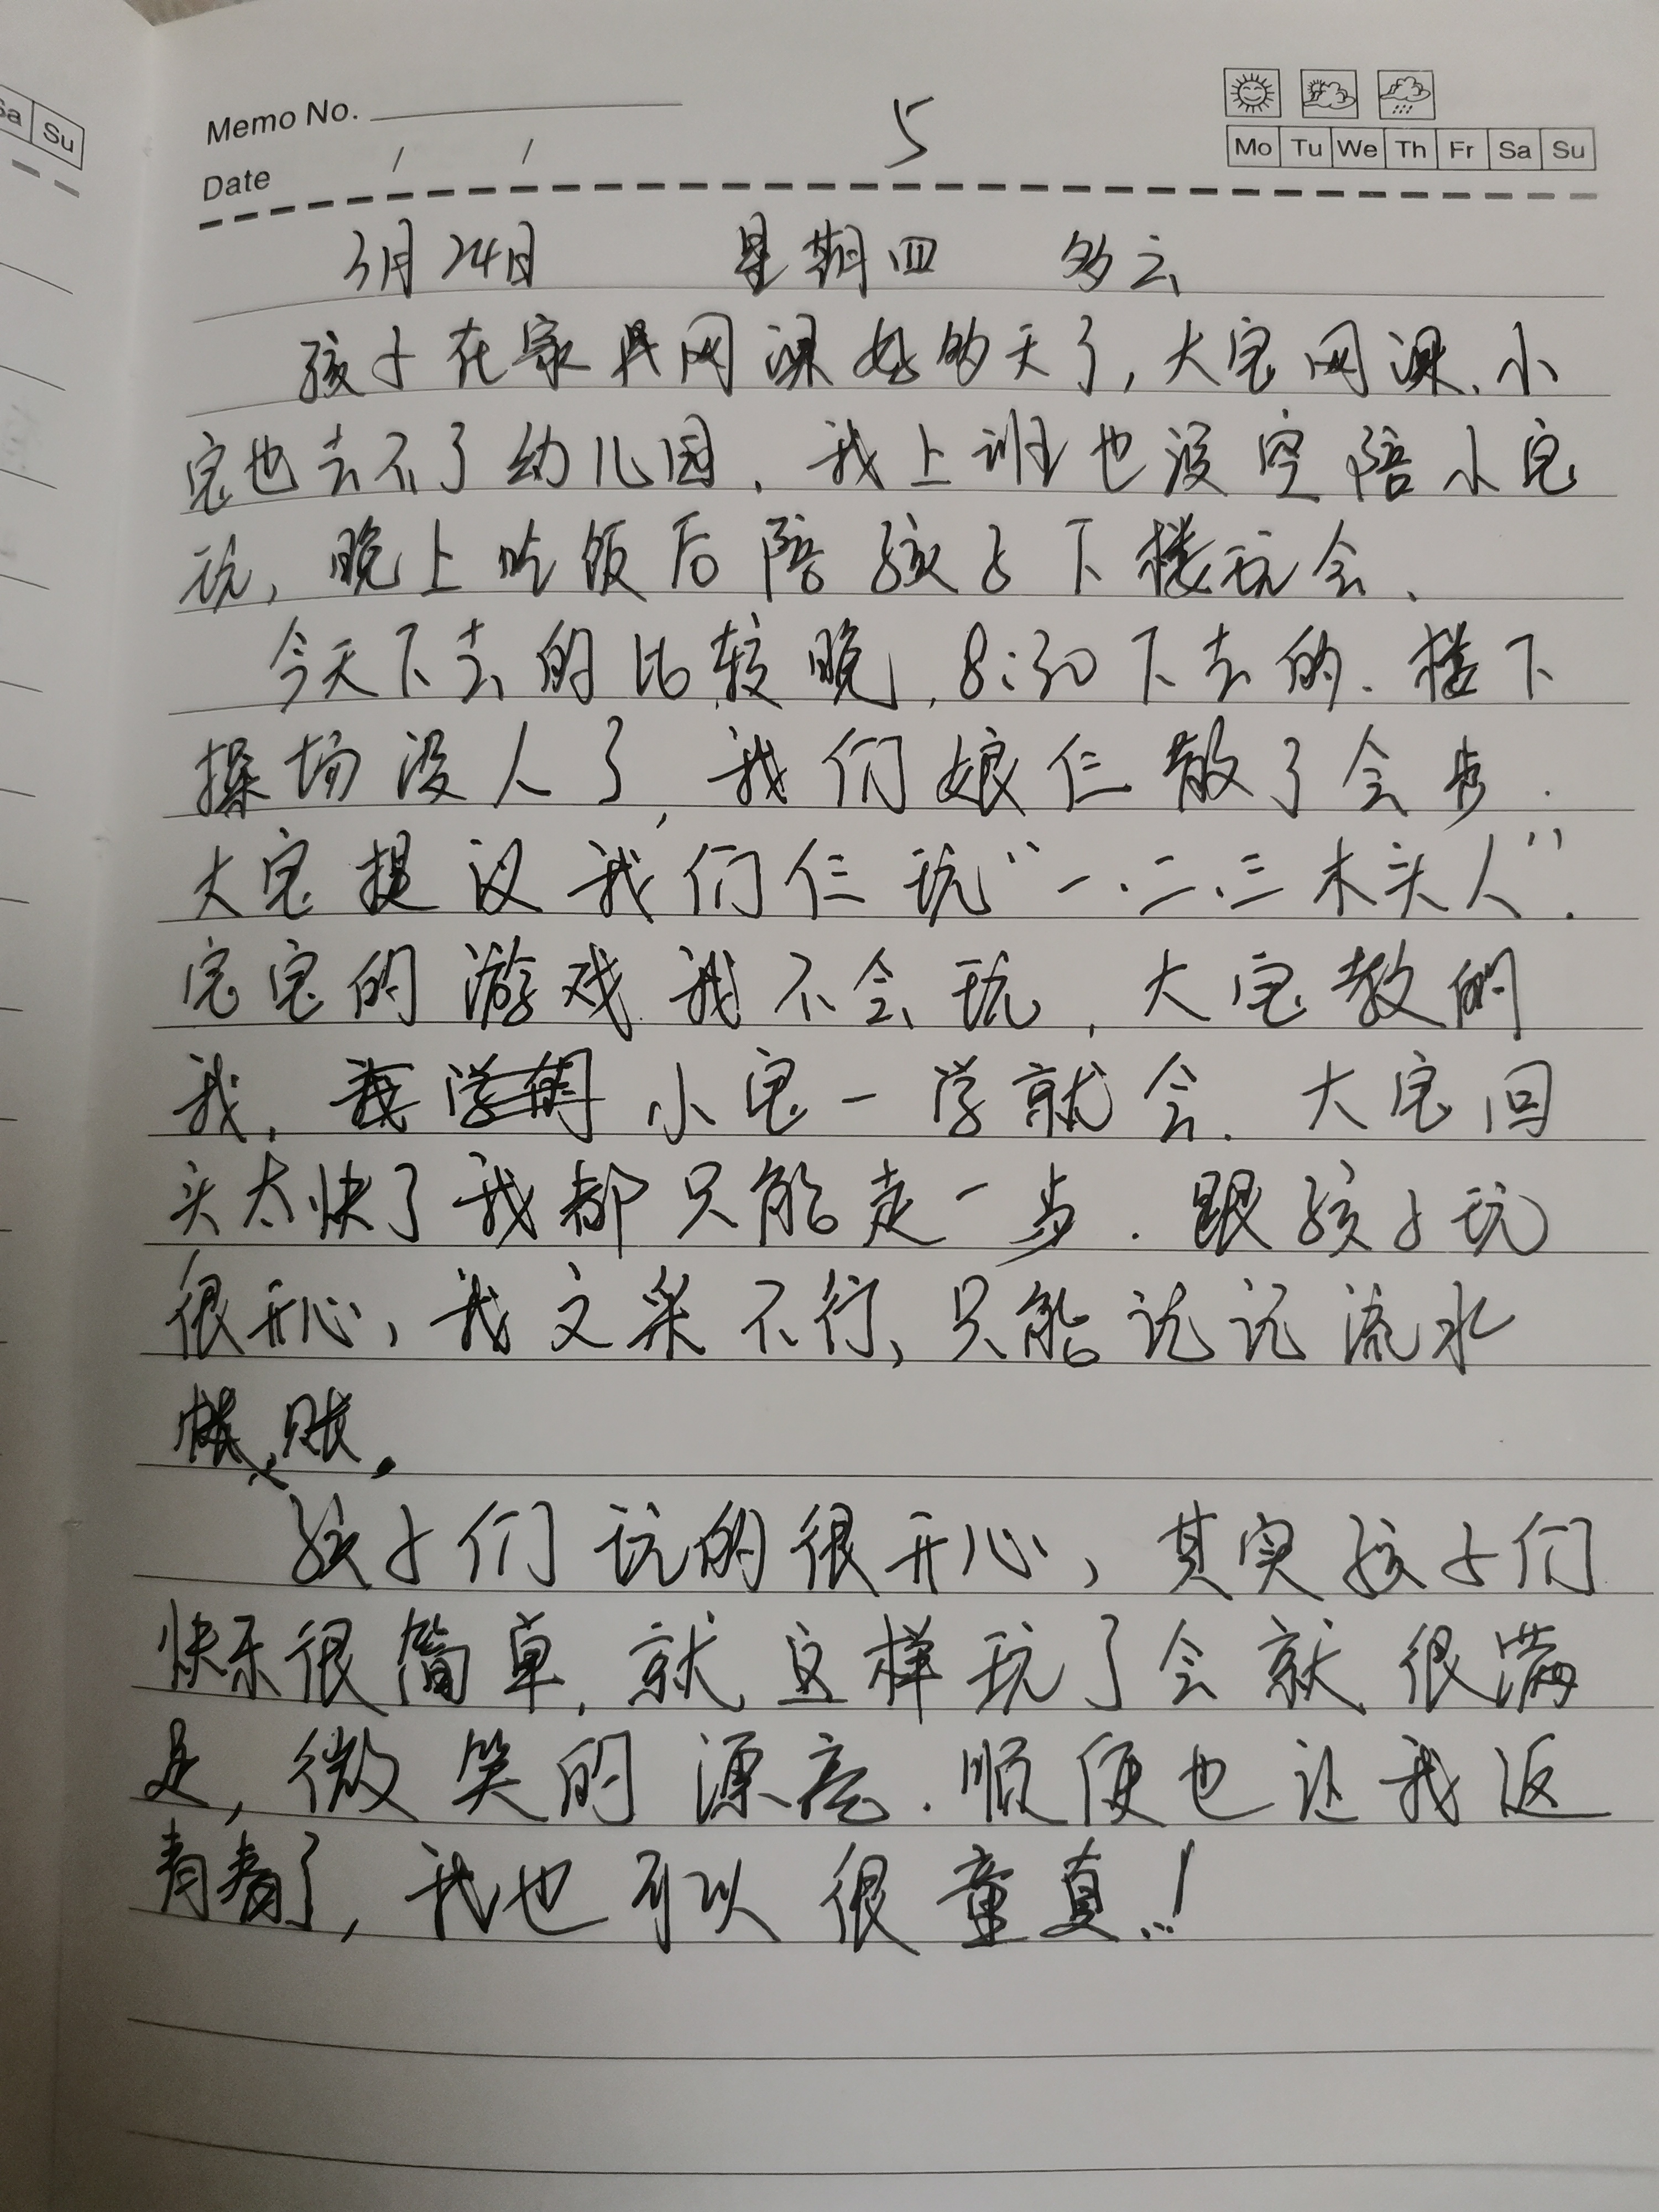 Sa Su
Memo No.
5
Mo Tu We Th Fr Sa Su
Date / /
3月24日 星期四 多云
孩子在家网课好多天了,大宝网课,小
宝也去不了幼儿园,我上班也没空陪小宝
玩,晚上吃饭后陪孩子下楼玩会.
今天下去的比较晚,8:30下去的.楼下
操场没人了,我们娘仨散了会步.
大宝提议我们仨玩“一.二.三木头人”.
宝宝的游戏我不会玩,大宝教的
我,小宝一学就会.大宝回
头太快了我都只能走一步.跟孩子玩
很开心,我文采不行,只能记记流水
账.
孩子们玩的很开心,其实孩子们
快乐很简单,就这样玩了会就很满
足,微笑的漂亮.顺便也让我返
青春了,我也可以很童真..!